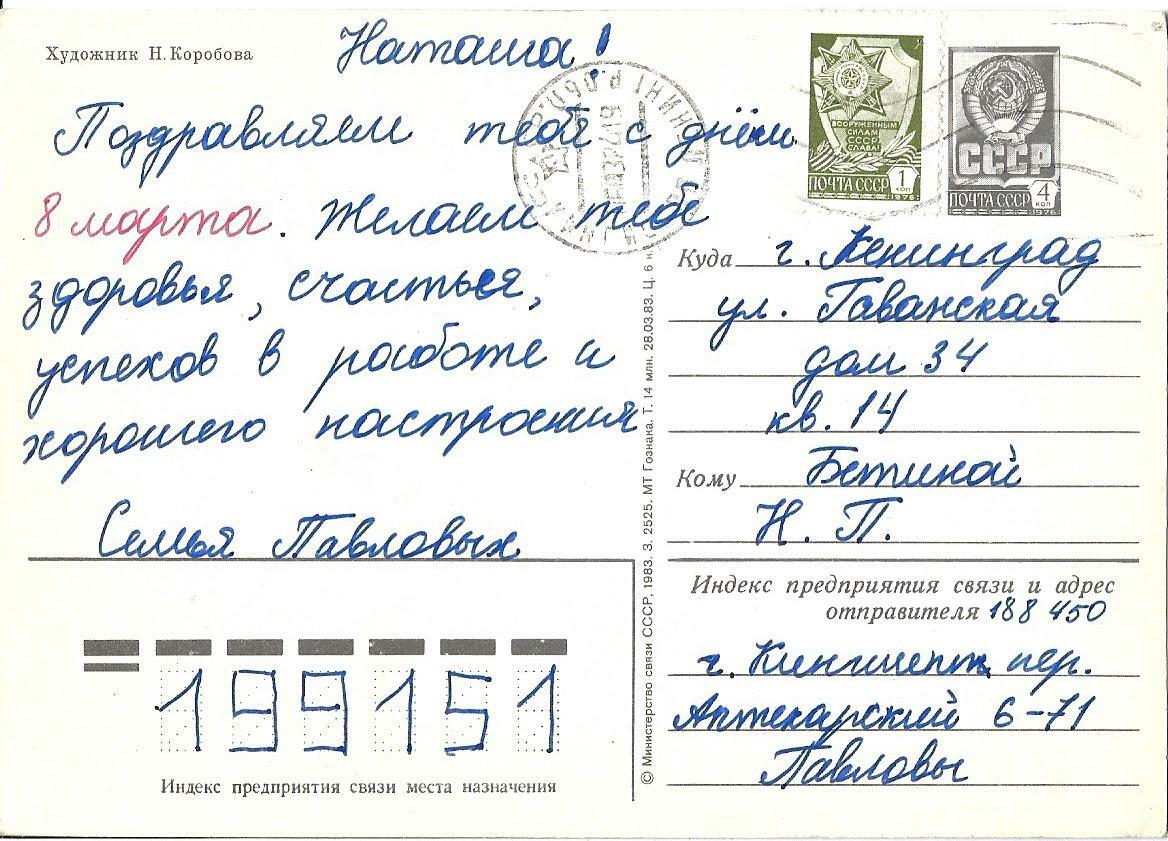 Художник Н. Коробова
Наташа!
Поздравляем тебя с днём
8 марта. Желаем тебе
здоровья, счастья,
успехов в работе и
хорошего настроения
Семья Павловых
ВООРУЖЕННЫМ
СИЛАМ
СССР
СЛАВА!
ПОЧТА СССР 1 коп
1976
СССР
ПОЧТА СССР 4 коп
1976
Куда г. Ленинград
ул. Гаванская
дом 34
кв. 14
Кому Бетиной
Н. П.
Индекс предприятия связи и адрес
отправителя 188 450
г. Кингисепп, пер.
Аптекарский 6-71
Павловы
© Министерство связи СССР, 1983. З. 2525. МТ Гознака. Т. 14 млн. 28.03.83. Ц. 6 к.
199151
Индекс предприятия связи места назначения